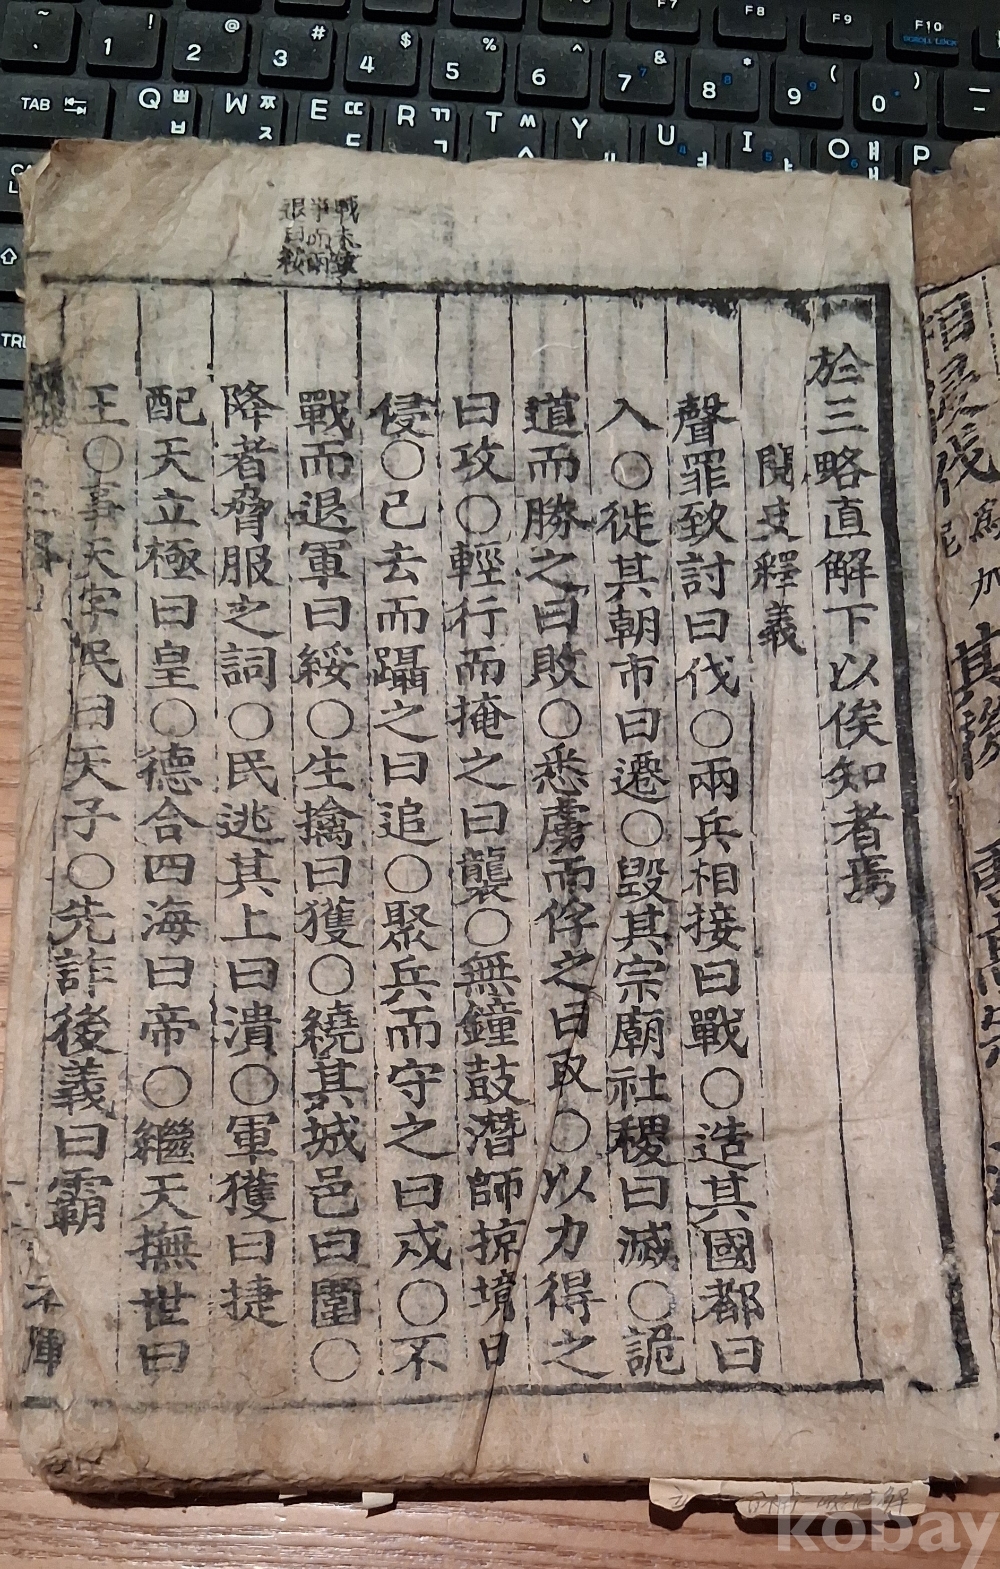 於三略直解下以俟知者焉
閱史釋義
聲罪致討曰伐○兩兵相接曰戰○造其國都曰
入○徙其朝市曰遷○毀其宗廟社稷曰滅○詭
道而勝之曰敗○悉虜而俘之曰取○以力得之
曰攻○輕行而掩之曰襲○無鐘鼓潛師掠境曰
侵○已去而躡之曰追○聚兵而守之曰戍○不
戰而退軍曰綏○生擒曰獲○繞其城邑曰圍○
降者脅服之詞○民逃其上曰潰○軍獲曰捷
配天立極曰皇○德合四海曰帝○繼天撫世曰
王○事天字民曰天子○先詐後義曰霸
戰未
爭而兩
退曰綏
~ ! 1 @ 2 # 3 $ 4 % 5 ^ 6 & 7 7 * 8 8 ( 9 9 ) 0
F7 F8 F9 F10
SCROLL LOCK
TAB Q ㅃ ㅂ W ㅉ ㅈ E ㄸ ㄷ R ㄲ ㄱ T ㅆ Y U 4 I 5 O P
kobay